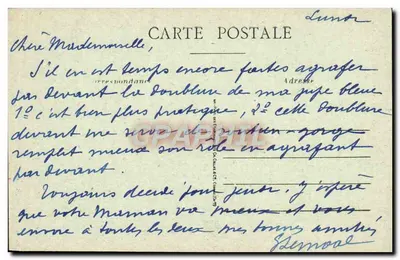 Lundi
CARTE POSTALE
Chère Mademoiselle,
Correspondance
Adresse
S'il en est temps encore faites agrafer
par devant la doublure de ma jupe bleue
1º c'est bien plus pratique, 2º cette doublure
devant me servir de soutien-gorge
remplit mieux son rôle en agrafant
par devant.
Toujours décidé pour jeudi. J'espère
que votre Maman va mieux et vous
envoie à toutes les deux mes bonnes amitiés